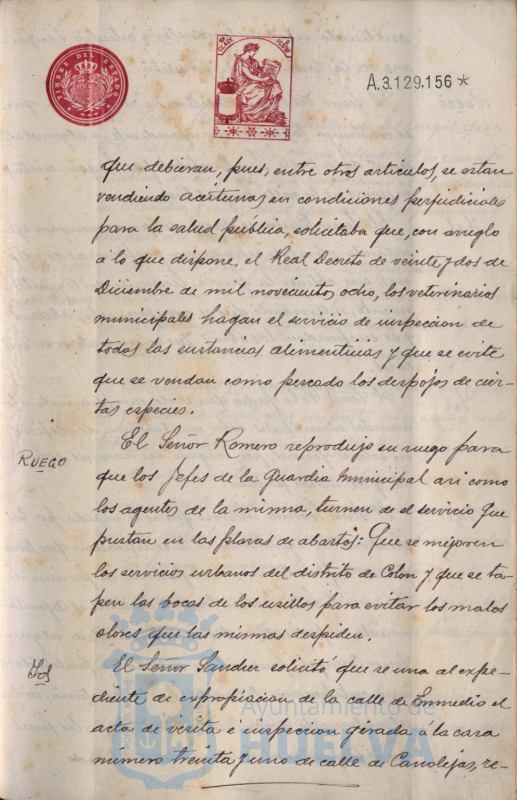 TIMBRE DEL ESTADO
A.3.129.156*
que debieran, pues, entre otros articulos, se estan
vendiendo aceitunas en condiciones perjudiciales
para la salud pública, solicitaba que, con arreglo
á lo que dispone, el Real Decreto de veinte y dos de
Diciembre de mil novecientos ocho, los veterinarios
municipales hagan el servicio de inspeccion de
todas las sustancias alimenticias y que se evite
que se vendan como pescado los despojos de cier-
tas especies.
RUEGO
El Señor Romero reprodujo su ruego para
que los Jefes de la Guardia Municipal asi como
los agentes de la misma, turnen de el servicio que
prestan en las plazas de abastos: Que se mejoren
los servicios urbanos del distrito de Colon y que se ta-
pen las bocas de los husillos para evitar los malos
olores que las mismas despiden.
Id
El Señor Sandier solicitó que se una al expe-
diente de expropiacion de la calle de Enmedio el
acta de visita e inspeccion girada á la casa
número treinta y uno de calle de Canalejas, re-
Ayuntamiento de
HUELVA